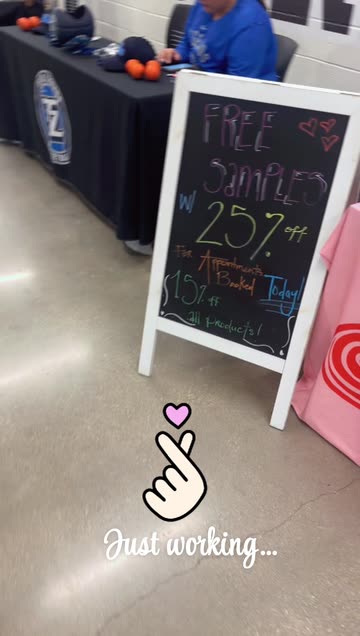 FREE
SAMPLES
W/
25% off
For Appointments
Booked Today!
15% off
all products!
Just working...